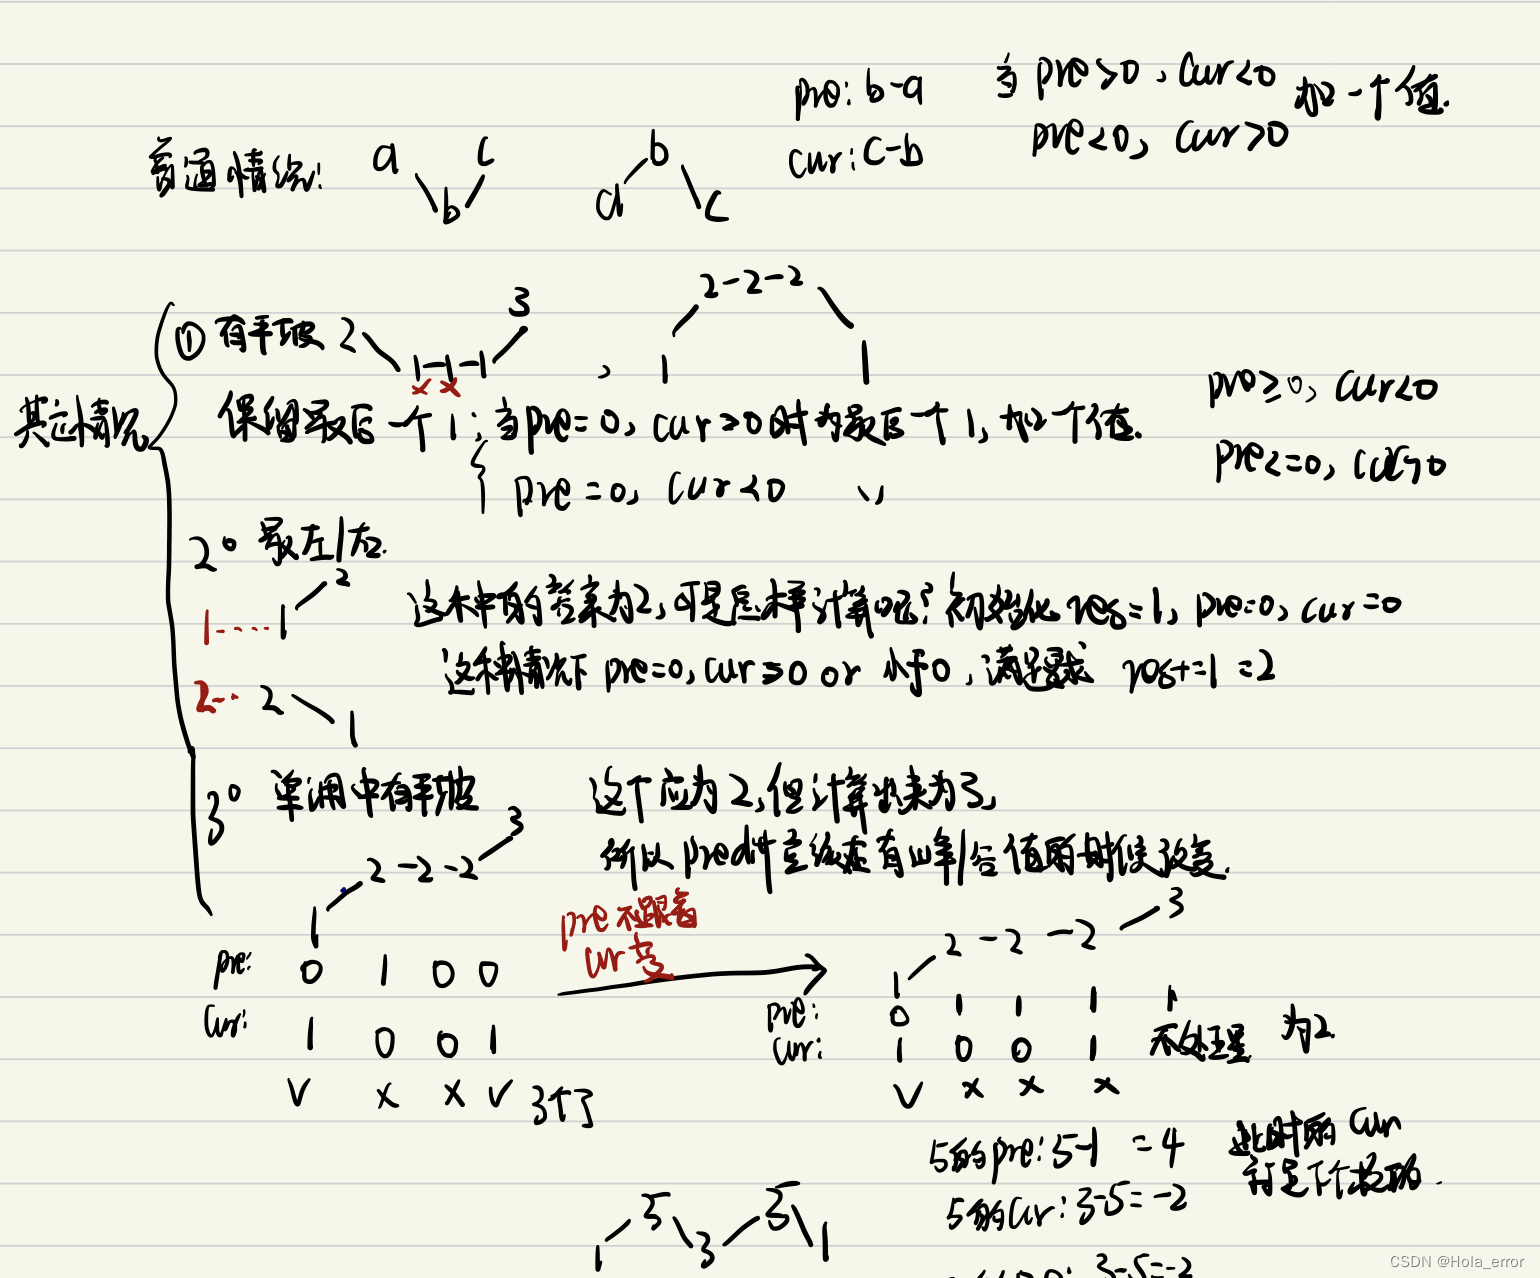 pre: b-a 当 pre>0, cur<0 加一个值.
cur: c-b pre<0, cur>0
普通情况: a b c a b c
① 有平坡 2 1-1-1 3 , 1 2-2-2 1
x x
其它情况
保留最后一个1; 当pre=0, cur>0时为最后一个1, 加一个值.
pre=0, cur<0 〃
pre≥0, cur<0
pre<=0, cur>0
2° 最左/右.
1----1 2
2-- 2 1
这个中的答案为2, 可是怎样计算呢? 初始化 res=1, pre=0, cur=0
这种情况下 pre=0, cur>0 or 小于0, 满足要求 res+=1 =2
3° 单调中有平坡
1 2-2-2 3
这个应为2, 但计算出来为3,
所以 prediff 在有峰/谷值的时候改变.
pre: 0 1 0 0
cur: 1 0 0 1
v x x v 3个了
pre 不跟着
cur 变
1 2-2-2 3
pre: 0 1 1 1 1
cur: 1 0 0 1 为2.
v x x x
5的pre: 5-1 =4 此时的 cur
5的cur: 3-5=-2
1 5 3 5 1
3-5=-2
CSDN @Hola_error